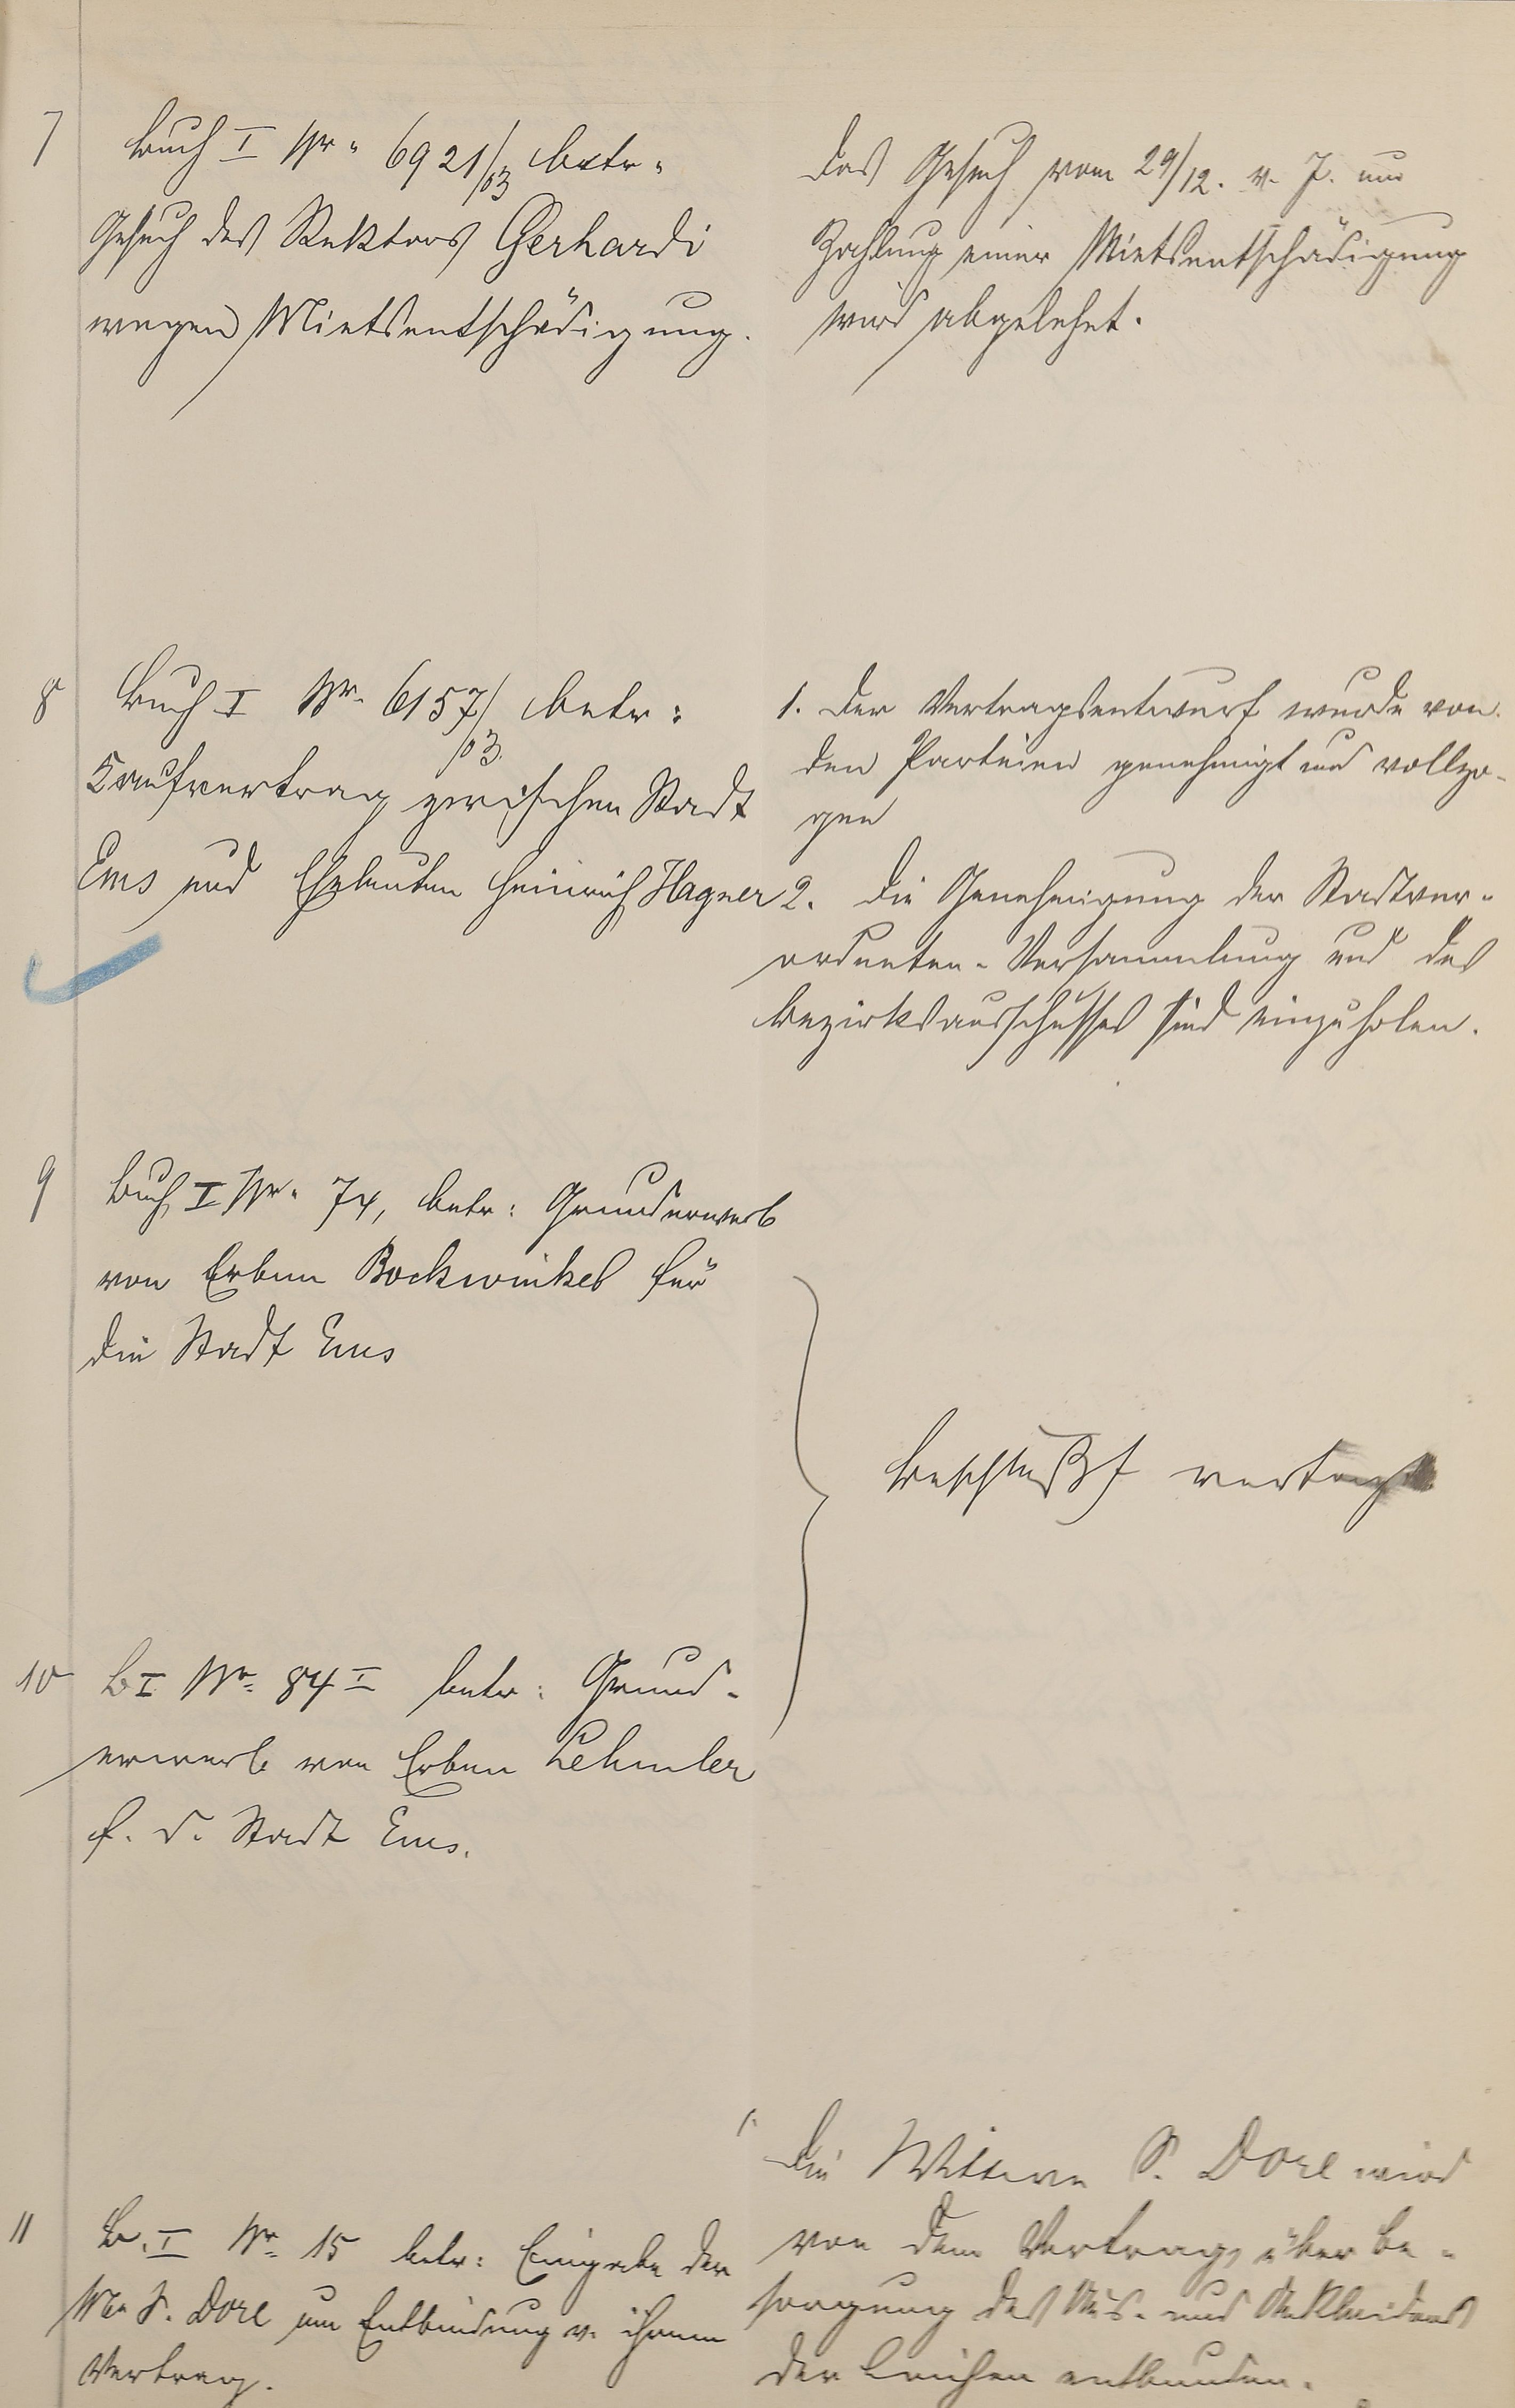 7
Buch I Nr. 6921/03 betr.
Gesuch des Rektors Gerhardi
wegen Mietsentschädigung.
Das Gesuch vom 29/12. v. J. um
Zahlung einer Mietsentschädigung
wird abgelehnt.
8
Buch I Nr. 6157/03 betr:
Kaufvertrag zwischen Stadt
Ems und Eheleuten Heinrich Hagner
1. Der Vertragsentwurf wurde von
den Parteien genehmigt und vollzo-
gen
2. Die Genehmigung der Stadtver-
ordneten-Versammlung und des
Bezirksausschusses sind einzuholen.
9
Buch I Nr. 74, betr: Grunderwerb
von Erben Bockwinkel für
die Stadt Ems
Beschluß vertagt
10
B I Nr. 84 I betr: Grund-
erwerb von Erben Lehmler
f. d. Stadt Ems.
11
B. I Nr. 15 betr: Eingabe der
W. S. Dorl um Entbindung v. ihrem
Vertrag.
1. Die Wittwe S. Dorl wird
von dem Vertrag über Be-
sorgung des Aus- und Ankleidens
der Leichen entbunden.